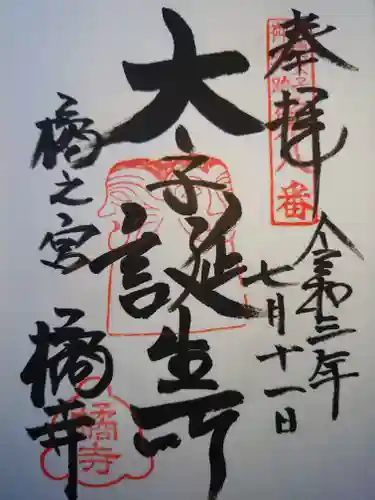 奉拝
令和三年
七月十一日
太子誕生所
橘之宮
橘寺
番
橘寺